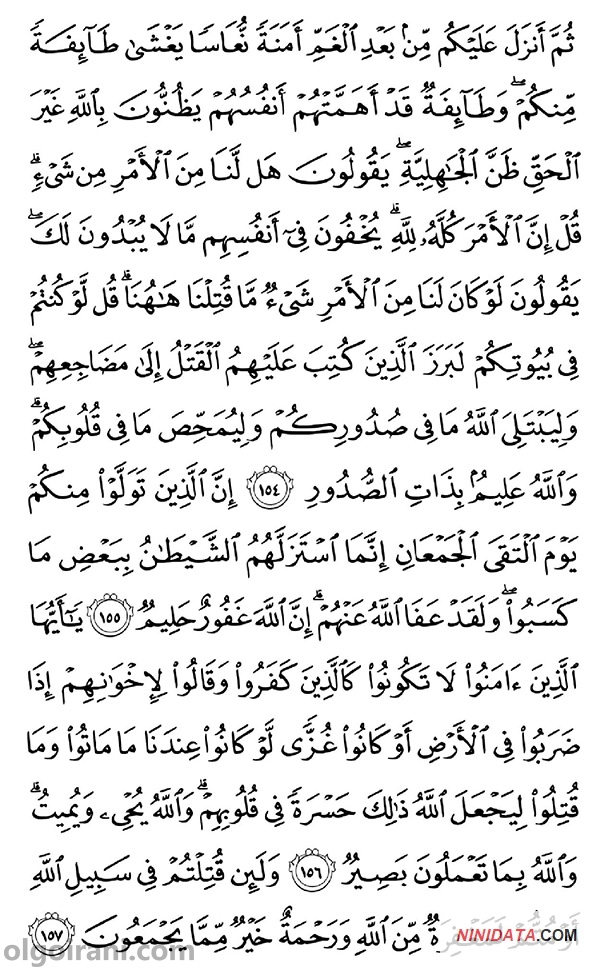 ثُمَّ أَنزَلَ عَلَيْكُم مِّنۢ بَعْدِ ٱلْغَمِّ أَمَنَةً نُّعَاسًا يَغْشَىٰ طَآئِفَةً
مِّنكُمْ ۖ وَطَآئِفَةٌ قَدْ أَهَمَّتْهُمْ أَنفُسُهُمْ يَظُنُّونَ بِٱللَّهِ غَيْرَ
ٱلْحَقِّ ظَنَّ ٱلْجَٰهِلِيَّةِ ۖ يَقُولُونَ هَل لَّنَا مِنَ ٱلْأَمْرِ مِن شَىْءٍ ۗ
قُلْ إِنَّ ٱلْأَمْرَ كُلَّهُۥ لِلَّهِ ۗ يُخْفُونَ فِىٓ أَنفُسِهِم مَّا لَا يُبْدُونَ لَكَ ۖ
يَقُولُونَ لَوْ كَانَ لَنَا مِنَ ٱلْأَمْرِ شَىْءٌ مَّا قُتِلْنَا هَٰهُنَا ۗ قُل لَّوْ كُنتُمْ
فِى بُيُوتِكُمْ لَبَرَزَ ٱلَّذِينَ كُتِبَ عَلَيْهِمُ ٱلْقَتْلُ إِلَىٰ مَضَاجِعِهِمْ ۖ
وَلِيَبْتَلِىَ ٱللَّهُ مَا فِى صُدُورِكُمْ وَلِيُمَحِّصَ مَا فِى قُلُوبِكُمْ ۗ
وَٱللَّهُ عَلِيمٌۢ بِذَاتِ ٱلصُّدُورِ ١٥٤ إِنَّ ٱلَّذِينَ تَوَلَّوْا۟ مِنكُمْ
يَوْمَ ٱلْتَقَى ٱلْجَمْعَانِ إِنَّمَا ٱسْتَزَلَّهُمُ ٱلشَّيْطَٰنُ بِبَعْضِ مَا
كَسَبُوا۟ ۖ وَلَقَدْ عَفَا ٱللَّهُ عَنْهُمْ ۗ إِنَّ ٱللَّهَ غَفُورٌ حَلِيمٌ ١٥٥ يَٰٓأَيُّهَا
ٱلَّذِينَ ءَامَنُوا۟ لَا تَكُونُوا۟ كَٱلَّذِينَ كَفَرُوا۟ وَقَالُوا۟ لِإِخْوَٰنِهِمْ إِذَا
ضَرَبُوا۟ فِى ٱلْأَرْضِ أَوْ كَانُوا۟ غُزًّى لَّوْ كَانُوا۟ عِندَنَا مَا مَاتُوا۟ وَمَا
قُتِلُوا۟ لِيَجْعَلَ ٱللَّهُ ذَٰلِكَ حَسْرَةً فِى قُلُوبِهِمْ ۗ وَٱللَّهُ يُحْىِۦ وَيُمِيتُ ۗ
وَٱللَّهُ بِمَا تَعْمَلُونَ بَصِيرٌ ١٥٦ وَلَئِن قُتِلْتُمْ فِى سَبِيلِ ٱللَّهِ
مِّنَ ٱللَّهِ وَرَحْمَةٌ خَيْرٌ مِّمَّا يَجْمَعُونَ ١٥٧
NINIDATA.COM
olgoirani.com